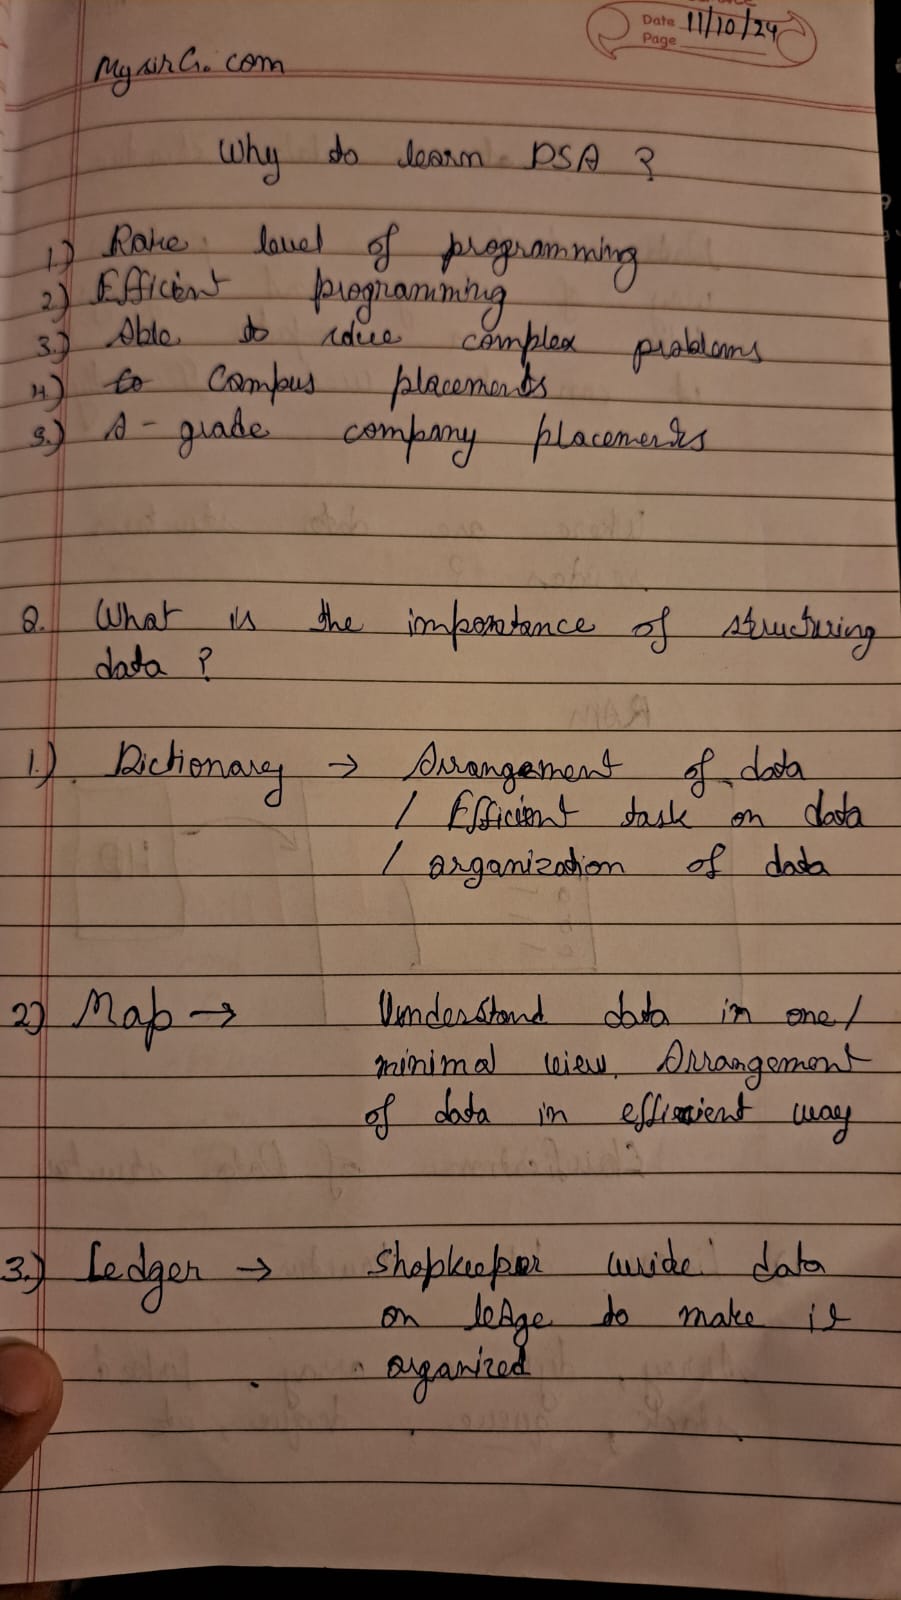 Date 11/10/24
Page
MysirG.com
Why to learn DSA ?
1.) Raise level of programming
2.) Efficient programming
3.) Able to solve complex problems
4.) to Campus placements
5.) A - grade company placements
Q. What is the imporatance of structuring
data ?
1.) Dictionary → Arrangement of data
/ Efficient task on data
/ organization of data
2.) Map → Understand data in one /
minimal view. Arrangement
of data in efficient way
3.) Ledger → Shopkeeper data
on ledge to make it
organized